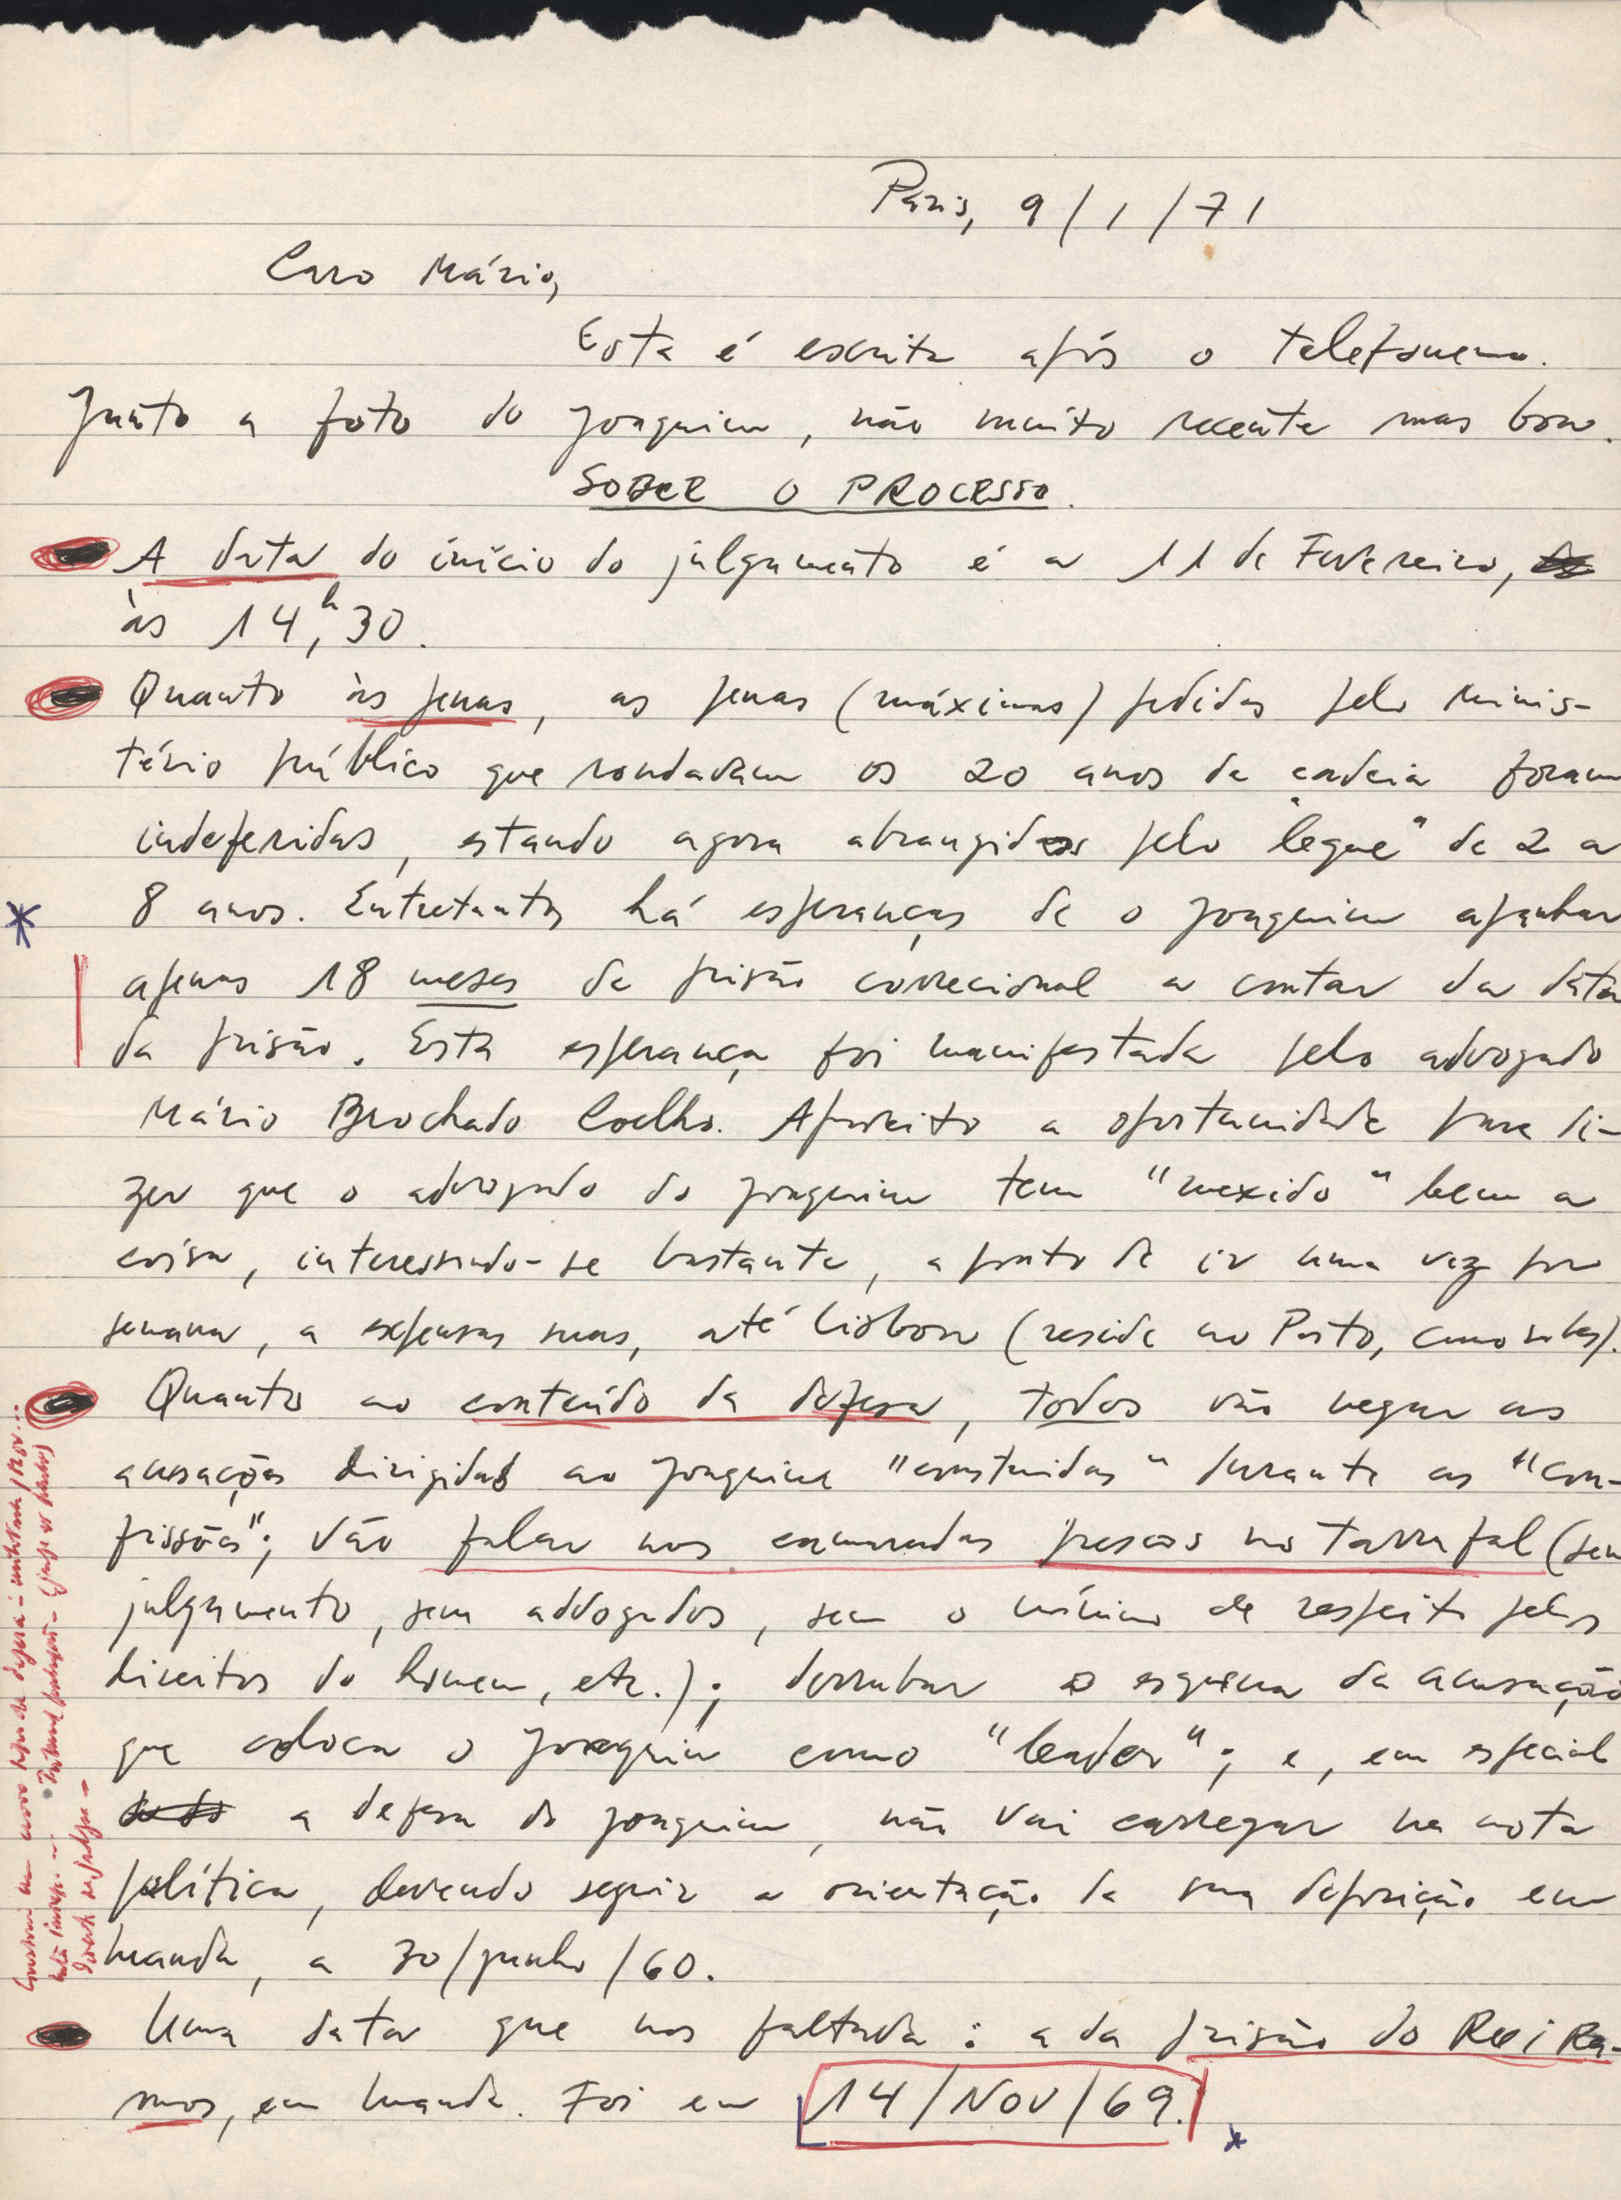 Paris, 9/1/71
Caro Mário,
Esta é escrita após o telefonema.
Junto a foto do Joaquim, não muito recente mas boa.
SOBRE O PROCESSO.
A data do início do julgamento é a 11 de Fevereiro,
às 14,h30.
Quanto às penas, as penas (máximas) pedidas pelo Minis-
tério público que rondavam os 20 anos de cadeia foram
indeferidas, estando agora abrangidos pelo "leque" de 2 a
8 anos. Entretanto, há esperanças de o Joaquim apanhar
apenas 18 meses de prisão correcional a contar da data
da prisão. Esta esperança foi manifestada pelo advogado
Mário Brochado Coelho. Aproveito a oportunidade para di-
zer que o advogado do Joaquim tem "mexido" bem a
coisa, interessando-se bastante, a ponto de ir uma vez por
semana, a expensas suas, até Lisboa (reside no Porto, como sabes).
Quanto ao conteúdo da defesa, todos vão negar as
acusações dirigidas ao Joaquim "construidas" durante as "con-
fissões"; vão falar nos camaradas presos no Tarrafal (sem
julgamento, sem advogados, sem o mínimo de respeito pelos
direitos do homem, etc.); derrubar o esquema da acusação
que coloca o Joaquim como "leader"; e, em especial
a defesa do Joaquim, não vai carregar na nota
política, devendo seguir a orientação da sua deposição em
Luanda, a 30/Junho/60.
Uma data que nos faltava: a da prisão do Rui Ra-
mos, em Luanda. Foi em 14/NOV/69.